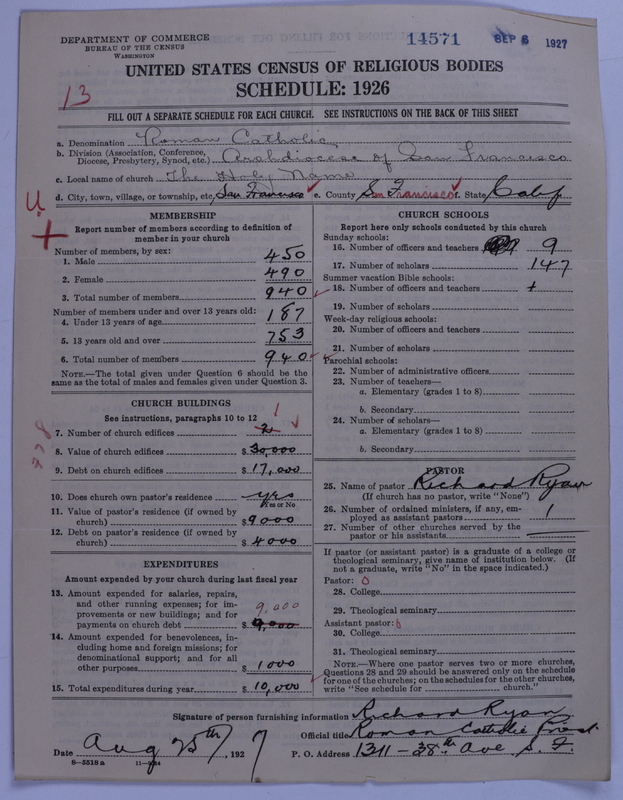 DEPARTMENT OF COMMERCE
BUREAU OF THE CENSUS
WASHINGTON
14571 SEP 6 1927
UNITED STATES CENSUS OF RELIGIOUS BODIES
SCHEDULE: 1926
13
FILL OUT A SEPARATE SCHEDULE FOR EACH CHURCH. SEE INSTRUCTIONS ON THE BACK OF THIS SHEET
a. Denomination Roman Catholic
b. Division (Association, Conference,
Diocese, Presbytery, Synod, etc.) Archdiocese of San Francisco
c. Local name of church The Holy Name
d. City, town, village, or township, etc. San Francisco e. County San Francisco f. State Calif
U.
MEMBERSHIP
Report number of members according to definition of
member in your church
Number of members, by sex:
1. Male 450
2. Female 490
3. Total number of members 940
Number of members under and over 13 years old:
4. Under 13 years of age 187
5. 13 years old and over 753
6. Total number of members 940
NOTE.—The total given under Question 6 should be the
same as the total of males and females given under Question 3.
CHURCH BUILDINGS
See instructions, paragraphs 10 to 12
1
7. Number of church edifices 2
8. Value of church edifices $ 30,000
9. Debt on church edifices $ 17,000
10. Does church own pastor's residence yes
Yes or No
11. Value of pastor's residence (if owned by
church) $ 9000
12. Debt on pastor's residence (if owned by
church) $ 4000
EXPENDITURES
Amount expended by your church during last fiscal year
13. Amount expended for salaries, repairs,
and other running expenses; for im-
provements or new buildings; and for
9,000
payments on church debt $ 9,000
14. Amount expended for benevolences, in-
cluding home and foreign missions; for
denominational support; and for all
other purposes $ 1000
15. Total expenditures during year $ 10,000
CHURCH SCHOOLS
Report here only schools conducted by this church
Sunday schools:
16. Number of officers and teachers 9
17. Number of scholars 147
Summer vacation Bible schools:
18. Number of officers and teachers +
19. Number of scholars
Week-day religious schools:
20. Number of officers and teachers
21. Number of scholars
Parochial schools:
22. Number of administrative officers
23. Number of teachers—
a. Elementary (grades 1 to 8)
b. Secondary
24. Number of scholars—
a. Elementary (grades 1 to 8)
b. Secondary
PASTOR
25. Name of pastor Richard Ryan
(If church has no pastor, write "None")
26. Number of ordained ministers, if any, em-
ployed as assistant pastors 1
27. Number of other churches served by the
pastor or his assistants
If pastor (or assistant pastor) is a graduate of a college or
theological seminary, give name of institution below. (If
not a graduate, write "No" in the space indicated.)
Pastor: 0
28. College
29. Theological seminary
Assistant pastor:
30. College
31. Theological seminary
NOTE.—Where one pastor serves two or more churches,
Questions 28 and 29 should be answered only on the schedule
for one of the churches; on the schedules for the other churches,
write "See schedule for church."
Signature of person furnishing information Richard Ryan
Official title Roman Catholic Priest
Date Aug 25th, 1927 P. O. Address 1311—38th Ave S. F.
8—5518 a